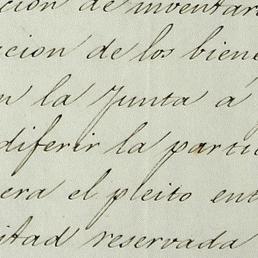 cion de inventar
acion de los biene
n la Junta á
diferir la parti
era el pleito ent
itad reservada